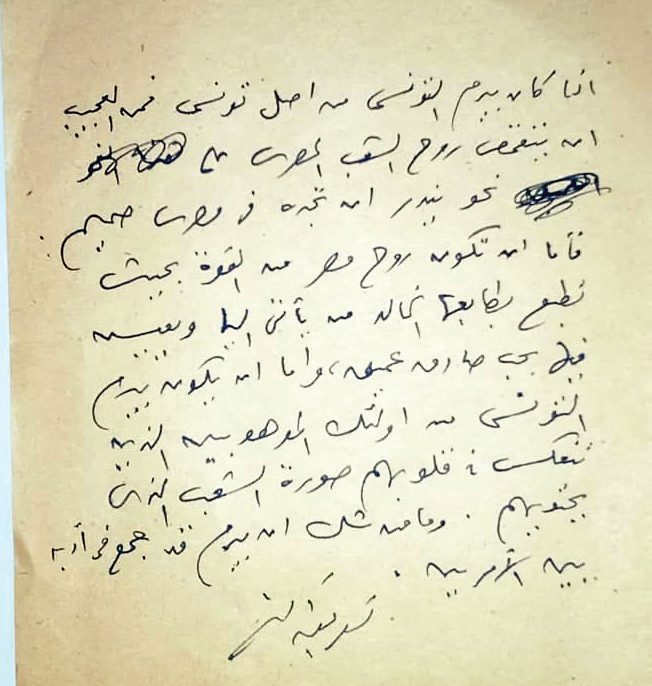 اذا كان بيرم التونسى من اصل تونسى فمن العجيب
ان يتقمص روح الشعب المصرى على
نحو يندر ان تجده فى مصرى صميم .
فأما ان تكون روح مصر من القوة بحيث
تطبع بطابعها الخالد من يأتى اليها ويعيش
فيها بحب صادق عميق، واما ان يكون بيرم
التونسى من اولئك الموهوبين الذين
تنعكس فى قلوبهم صورة الشعب الذى
يحتويهم . وما من شك ان بيرم قد جمع فى أدبه
بين الأمرين .